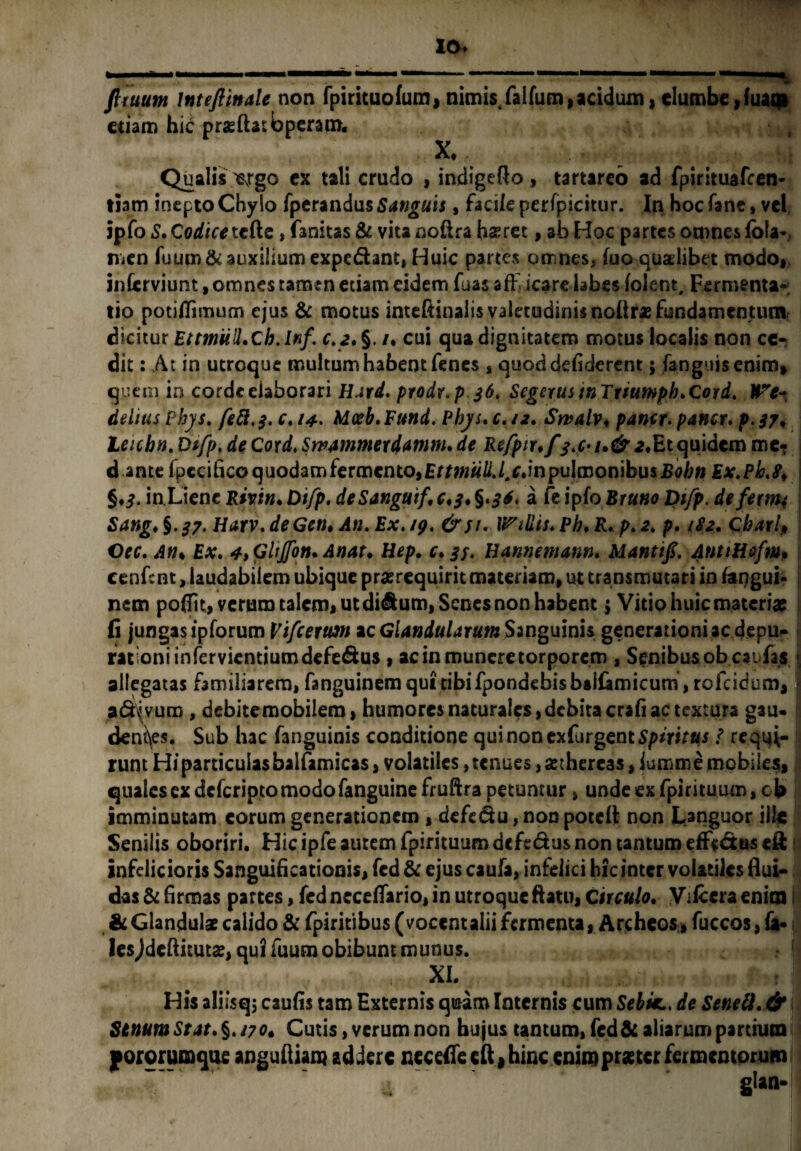 10.
ſtruum Inteſtinale non ſpirituoſum, nimis ſalſum, acidum, elumbe, ſuam
etiam hic præſtat operam.
X.
Qualis ergo ex tali crudo, indigeſto, tartareo ad ſpirituaſcen-
tiam inepto Chylo ſperandus Sanguis, facile perſpicitur. In hoc ſane, vel
ipſo S. Codice teſte, ſanitas & vita noſtra hæret, ab Hoc partes omnes ſola-
men ſuum & auxilium expectant, Huic partes omnes, ſuo quælibet modo,
inſerviunt, omnes tamen etiam eidem ſuas affricare labes ſolent. Fermenta-
tio potiſſimum ejus & motus inteſtinalis valetudinis noſtræ fundamentum
dicitur Ettmüll. Ch. Inf. c. 2. §. 1. cui qua dignitatem motus localis non ce-
dit: At in utroque multum habent ſenes, quod deſiderent; ſanguis enim,
quem in corde elaborari Hard. prodr. p 36. Segerus in Triumph. Cord. We-
delius Phys. ſect. 3. c. 14. Mœb. Fund. Phys. c. 12. Swalv. pancr. pancr. p. 37.
Leichn. Diſp. de Cord. Swammerdamm. de Reſpir. ſ 3. c. 1. & 2. Et quidem me-
dante ſpecifico quodam fermento, Ettmüll. l. c. in pulmonibus Bohn Ex. Ph. 8.
§. 3. in Liene Rivin. Diſp. de Sanguif. c. 3. §. 36. à ſe ipſo Bruno Diſp. de ferm.
Sang. §. 37. Harv. de Gen. An. Ex. 19. & 51. Willis. Ph. R. p. 2. p. 182. Charl.
Oec. An. Ex. 4. Gliſſon. Anat. Hep. c. 35. Hannemann. Mantiſſ. AntiHofm.
cenſent, laudabilem ubique prærequirit materiam, ut transmutari in ſangui-
nem poſſit, verum talem, ut dictum, Senes non habent; Vitio huic materiæ
ſi jungas ipſorum Viſcerum ac Glandularum Sanguinis generationi ac depu-
rationi inſervientium defectus, ac in munere torporem, Senibus ob cauſas
allegatas familiarem, ſanguinem qui tibi ſpondebis balſamicum, roſcidum,
activum, debite mobilem, humores naturales, debita craſi ac textura gau-
dentes. Sub hac ſanguinis conditione qui non exſurgent Spiritus? requi-
runt Hi particulas balſamicas, volatiles, tenues, æthereas, ſumme mobiles,
quales ex deſcripto modo ſanguine fruſtra petuntur, unde ex ſpirituum, ob
imminutam eorum generationem, defectu, non poteſt non Languor ille
Senilis oboriri. Hic ipſe autem ſpirituum defectus non tantum effectus eſt
infelicioris Sanguificationis, ſed & ejus cauſa, infelici hic inter volatiles flui-
das & firmas partes, ſed neceſſario, in utroque ſtatu, Circulo. Viſcera enim
& Glandulæ calido & ſpiritibus (vocent alii fermenta, Archeos, ſuccos, ſa-
les) deſtitutæ, quî ſuum obibunt munus.
XI.
His aliisq; cauſis tam Externis quàm Internis cum Sebiz. de Senect. &
Senum Stat. §. 170. Cutis, verum non hujus tantum, ſed & aliarum partium
pororumque anguſtiam addere neceſſe eſt, hinc enim præter fermentorum
glan-